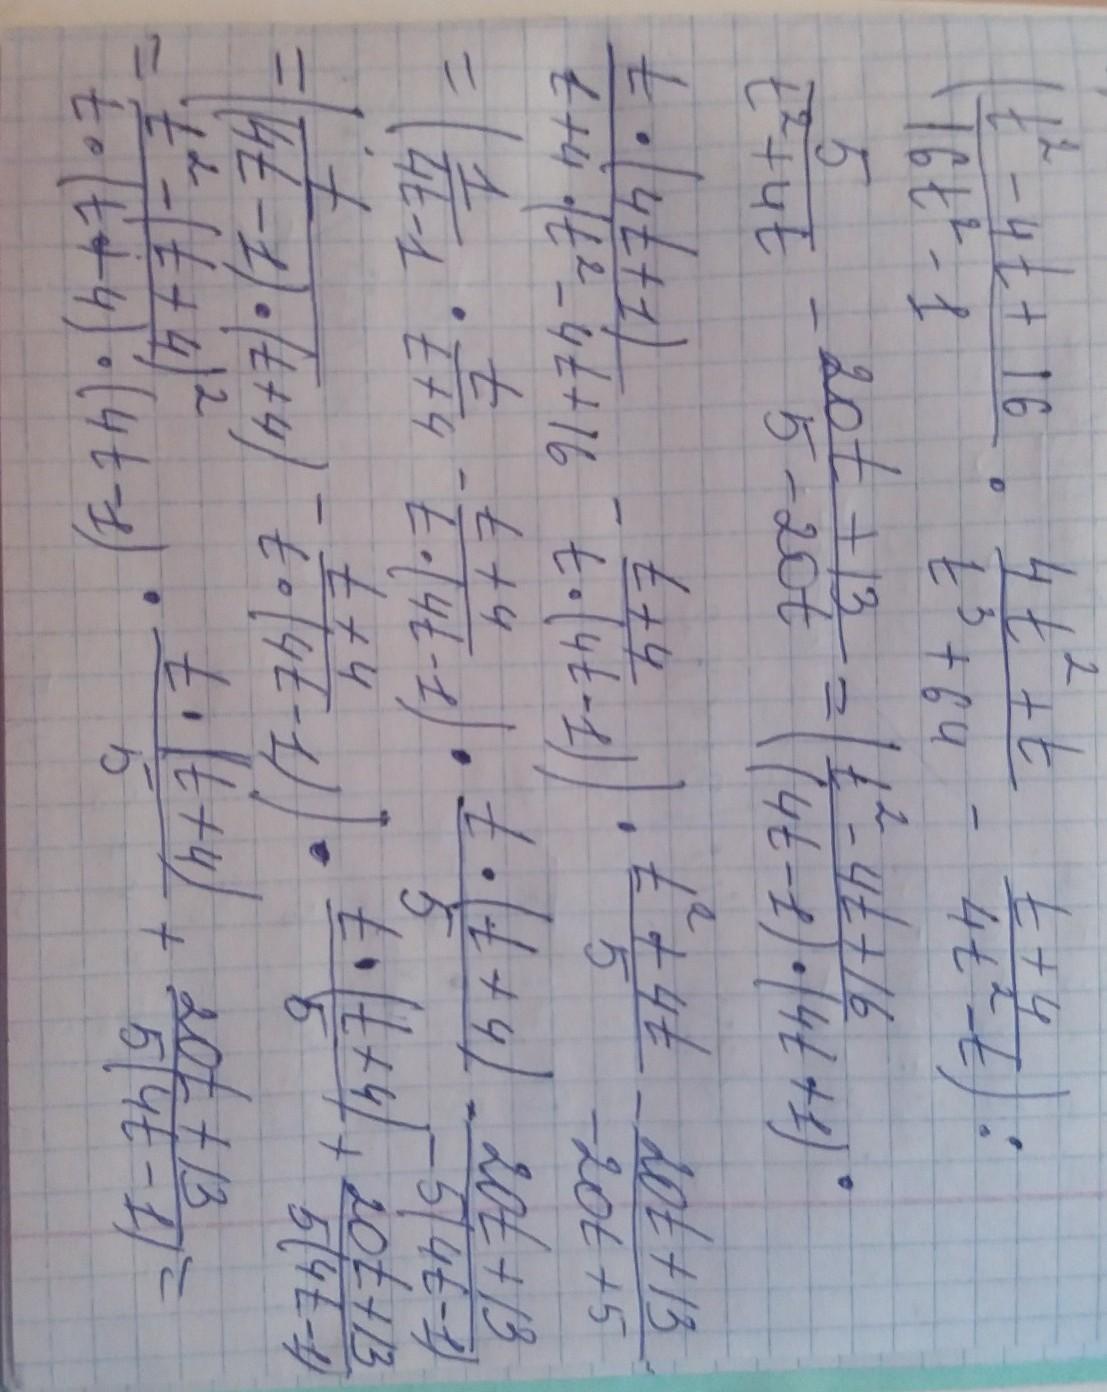 (t² - 4t + 16 / 16t² - 1 · 4t² + t / t³ + 64 - t + 4 / 4t² - t) :
5 / t² + 4t - 20t + 13 / 5 - 20t = (t² - 4t + 16 / (4t - 1) · (4t + 1) ·
t · (4t + 1) / t + 4 · (t² - 4t + 16 - t + 4 / t · (4t - 1)) · t² + 4t / 5 - 20t + 13 / -20t + 5
= (1 / 4t - 1 · t / t + 4 - t + 4 / t · (4t - 1)) · t · (t + 4) / 5 - 20t + 13 / -5(4t - 1)
= (t / (4t - 1) · (t + 4) - t + 4 / t · (4t - 1)) · t · (t + 4) / 5 + 20t + 13 / 5(4t - 1)
= t² - (t + 4)² / t · (t + 4) · (4t - 1) · t · (t + 4) / 5 + 20t + 13 / 5(4t - 1) =